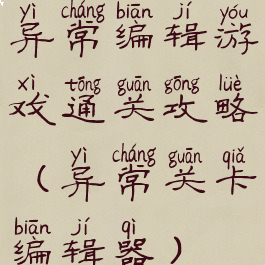 yì cháng biān jí yóu
异常编辑游
xì tōng guān gōng lüè
戏通关攻略
yì cháng guān qiǎ
（异常关卡
biān jí qì
编辑器）